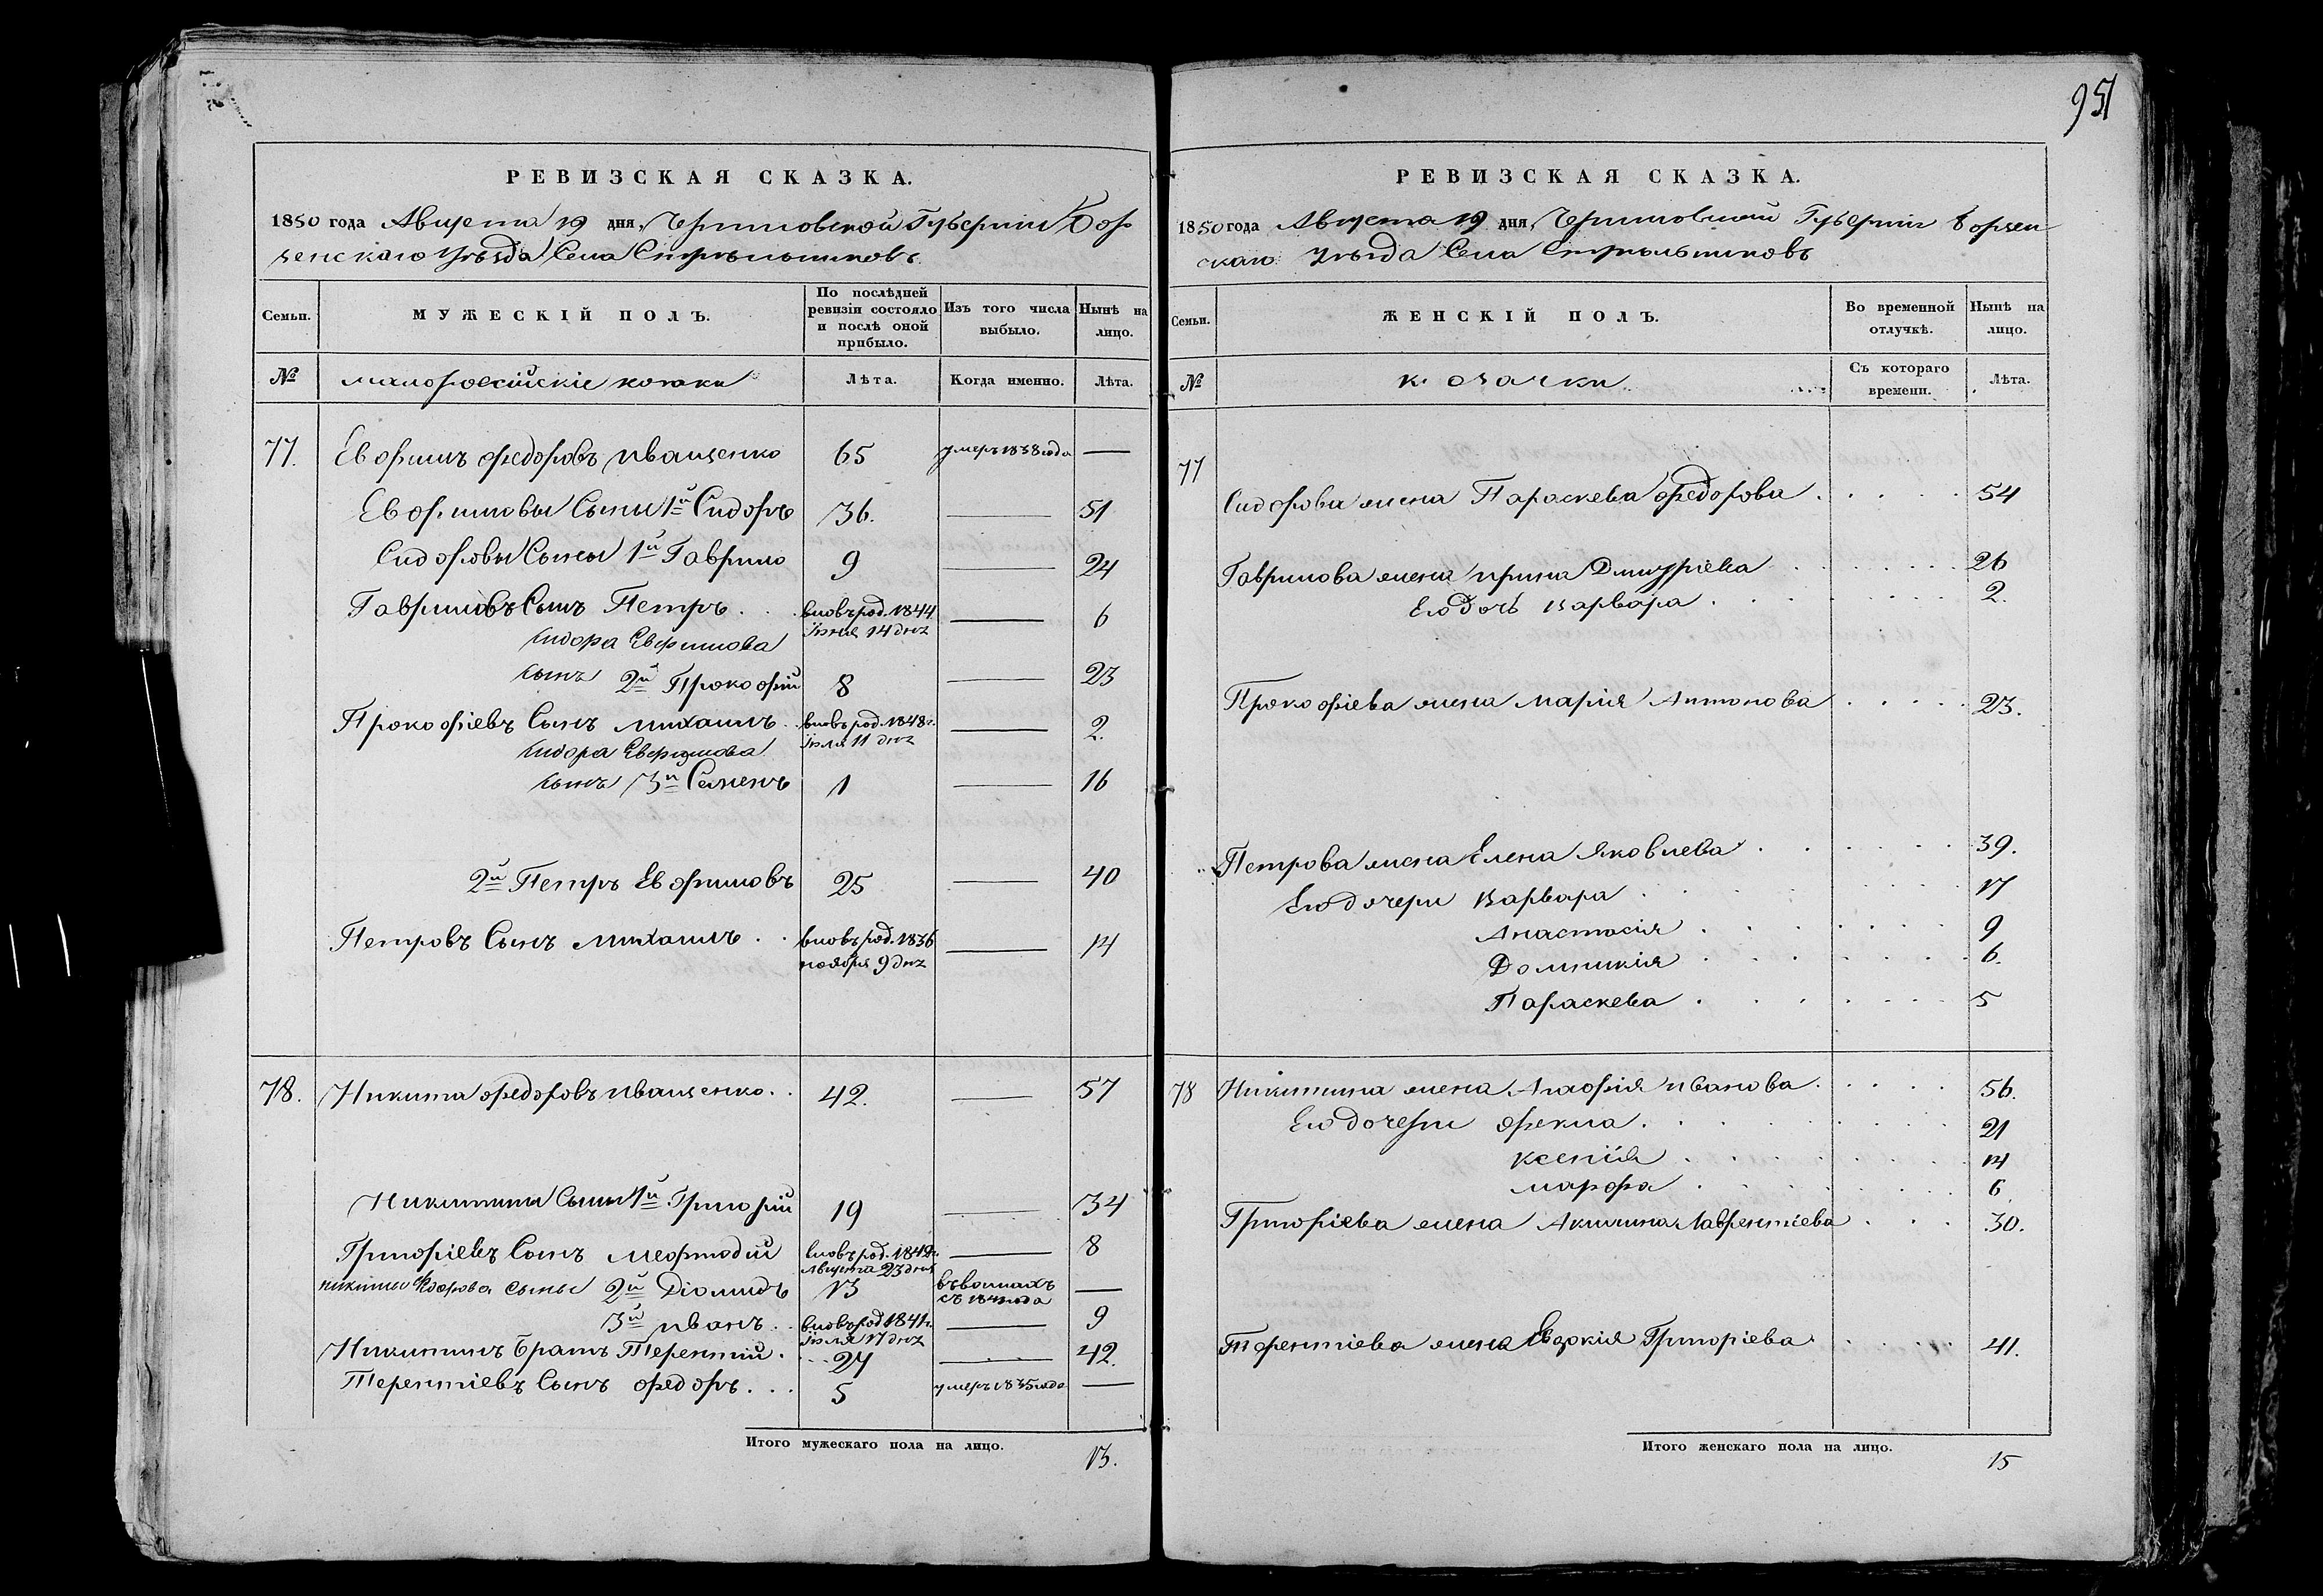 951
РЕВИЗСКАЯ СКАЗКА.
1850 года Августа 19 дня, Черниговской Губернии Бор
зенскаго Уѣзда Села Стрѣльниковъ
Семьи. МУЖЕСКІЙ ПОЛЪ. По послѣдней ревизіи состояло и послѣ оной прибыло. Изъ того числа выбыло. Нынѣ на лицо.
№ малороссійскіе козаки Лѣта. Когда именно. Лѣта.
77. Евфимъ Федоровъ Иващенко 65 умеръ 1838 года —
Евфимовы Сыны 1й Сидоръ 36. — 51
Сидоровы Сыны 1й Гаврило 9 — 24
Гавриловъ Сынъ Петръ . . вновь род. 1844 — 6
Іюня 14 дня
Сидора Евфимова
сынъ 2й Прокофій 8 — 23
Прокофіевъ Сынъ Михаилъ . вновь род. 1848 г. — 2.
Іюля 11 дня
Сидора Евфимова
сынъ 3й Семенъ 1 — 16
2й Петръ Евфимовъ 25 — 40
Петровъ Сынъ Михаилъ . . вновь род. 1836 — 14
ноября 9 дня
78. Никита Федоровъ Иващенко . . 42. — 57
Никитины Сыны 1й Григорій 19 — 34
Григоріевъ Сынъ Мефтодій вновь род. 1842 г. — 8
Августа 23 дня
Никиты Федорова сыны 2й Діомидъ 13 въ —
съ года
3й Иванъ . . вновь род 1841 г. — 9
Іюля 17 дня
Никитинъ братъ Терентій . . . 27 — 42.
Терентіевъ Сынъ Федоръ . . . 5 умеръ 1835 года —
Итого мужескаго пола на лицо. 13.
РЕВИЗСКАЯ СКАЗКА.
1850 года Августа 19 дня, Черниговской Губерніи Борзен
скаго Уѣзда Села Стрѣльниковъ
Семьи. ЖЕНСКІЙ ПОЛЪ. Во временной отлучкѣ. Нынѣ на лицо.
№ козачки Съ котораго времени. Лѣта.
77
Сидорова жена Параскева Федорова . . . . . 54
Гаврилова жена Ирина Дмитріева . . . . . . . 26
Его дочь Варвара . . . . . . . . 2.
Прокофіева жена Марія Антонова . . . . . 23.
Петрова жена Елена Яковлева . . . . . . . 39.
Его дочери Варвара . . . . . . . 17
Анастасія . . . . . . . 9
Домникія . . . . . . . 6.
Параскева . . . . . . . 5
78 Никитина жена Агафія Иванова . . . . . 56.
Его дочери Фекла . . . . . . . . 21
Ксенія . . . . . . . 14
Марфа . . . . . . . 6
Григоріева жена Акилина Лаврентіева . . . 30.
Терентіева жена Евдокія Григоріева . . . . . 41.
Итого женскаго пола на лицо. 15